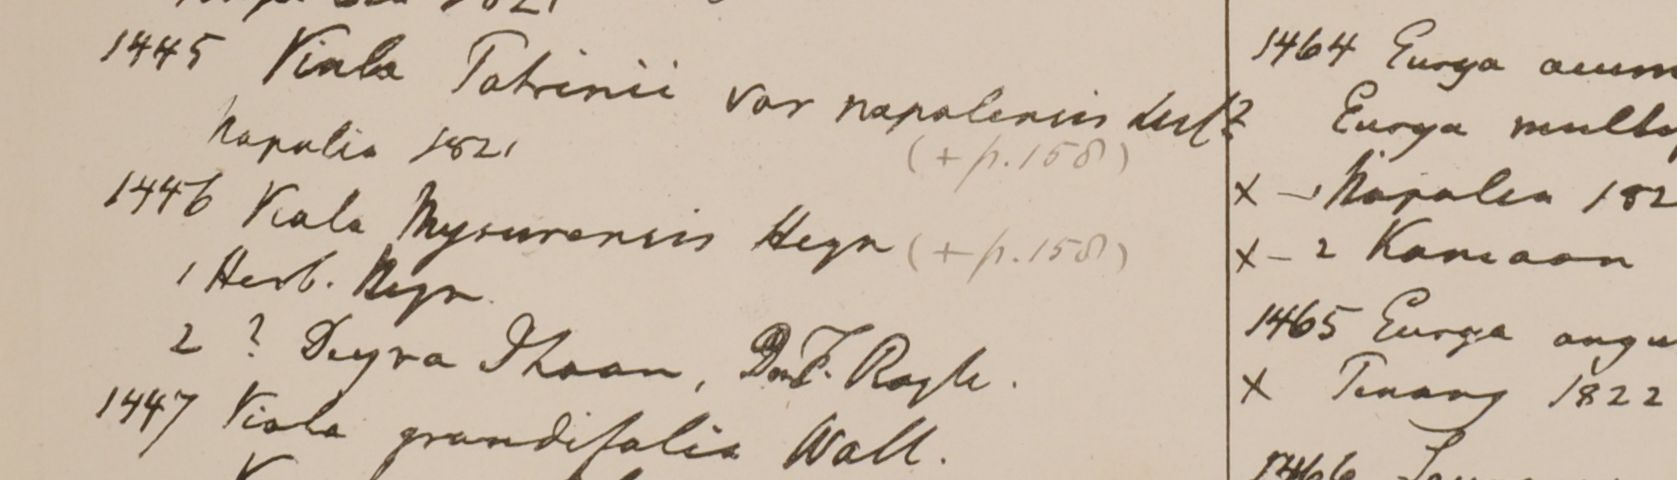 1445 Viola Patrinii var napalensis
Napalia 1821
(+ p.158)
1446 Viola Mysurensis Heyn (+ p.158)
1 Herb. Heyn.
2 ? Deyra Dhoon,
1447 Viola grandifolia Wall.
1464 Eurya acum
Eurya mult
X - 1 Napalia 182
X - 2 Kamaon
1465 Eurya angu
X Penang 1822
1466